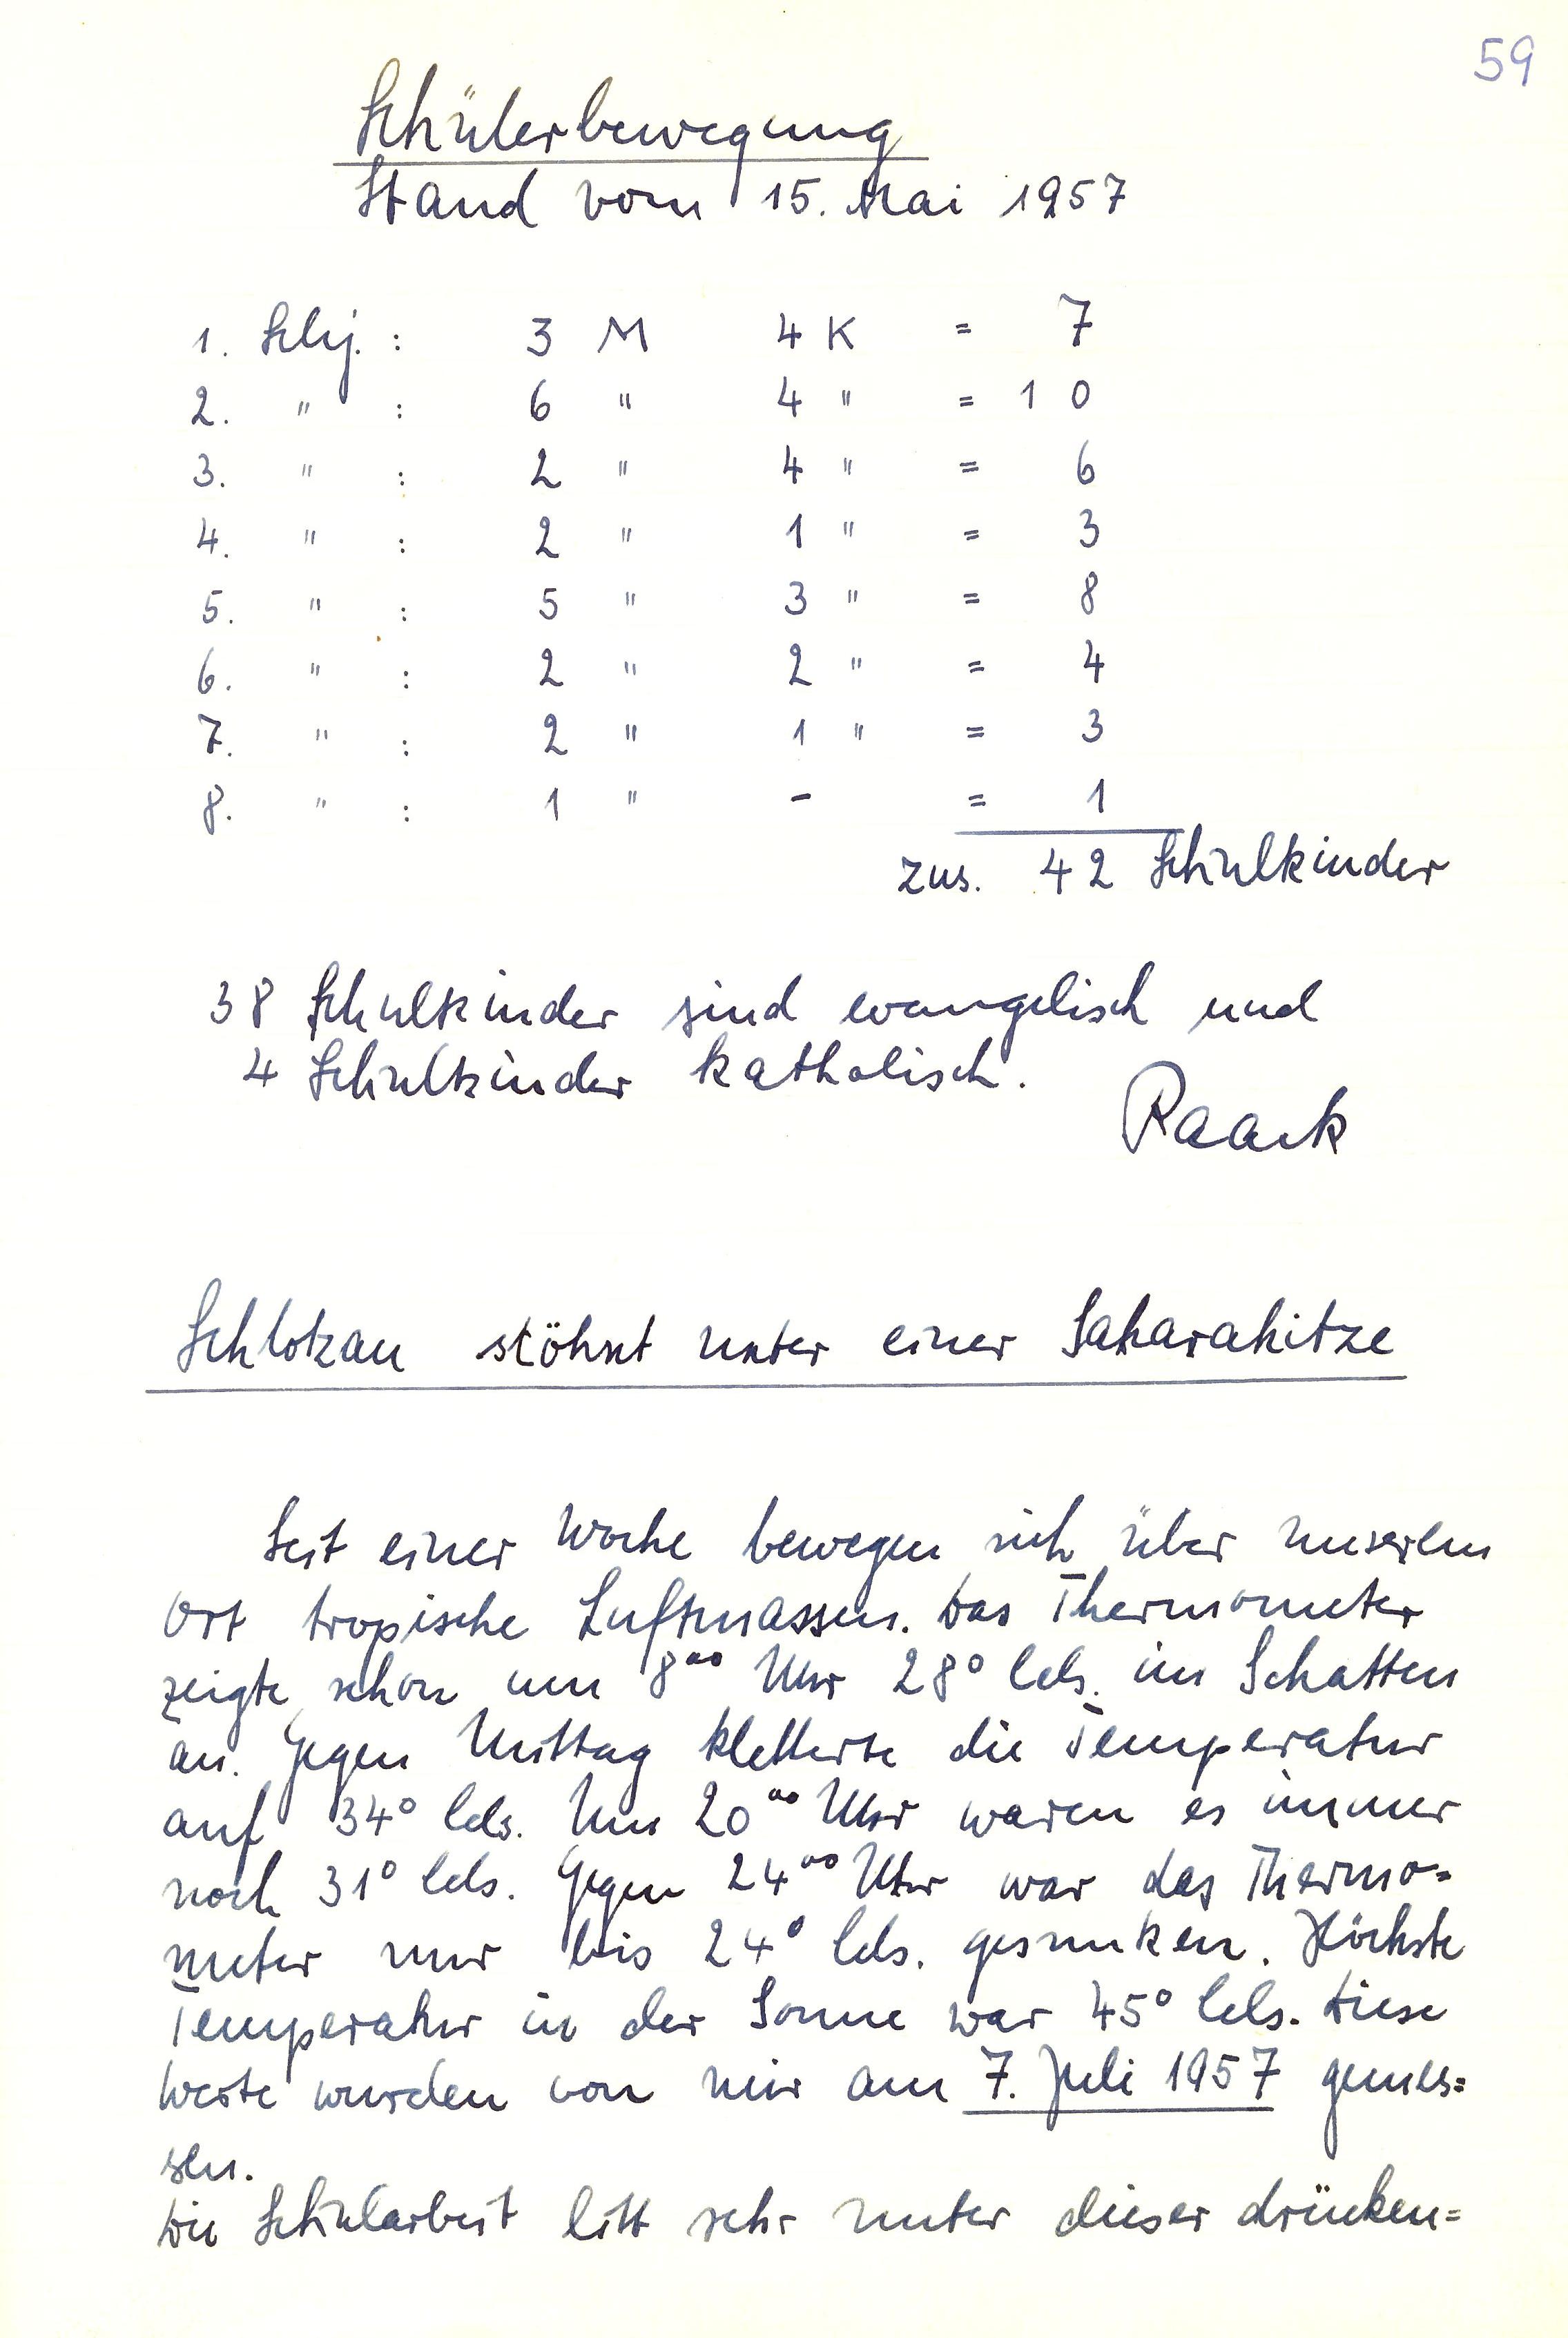 59
Schülerbewegung
Stand vom 15. Mai 1957
1. Schj. : 3 M 4 K = 7
2. " : 6 " 4 " = 10
3. " : 2 " 4 " = 6
4. " : 2 " 1 " = 3
5. " : 5 " 3 " = 8
6. " : 2 " 2 " = 4
7. " : 2 " 1 " = 3
8. " : 1 " - = 1
zus. 42 Schulkinder
38 Schulkinder sind evangelisch und
4 Schulkinder katholisch.
Raack
Schlotzau stöhnt unter einer Saharahitze
Seit einer Woche bewegen sich über unserem
Ort tropische Luftmassen. Das Thermometer
zeigte schon um 8⁰⁰ Uhr 28° Cels. im Schatten
an. Gegen Mittag kletterte die Temperatur
auf 34° Cels. Um 20⁰⁰ Uhr waren es immer
noch 31° Cels. Gegen 24⁰⁰ Uhr war das Thermo=
meter nur bis 24° Cels. gesunken. Höchste
Temperatur in der Sonne war 45° Cels. Diese
Werte wurden von mir am 7. Juli 1957 gemes=
sen.
Die Schularbeit litt sehr unter dieser drücken=